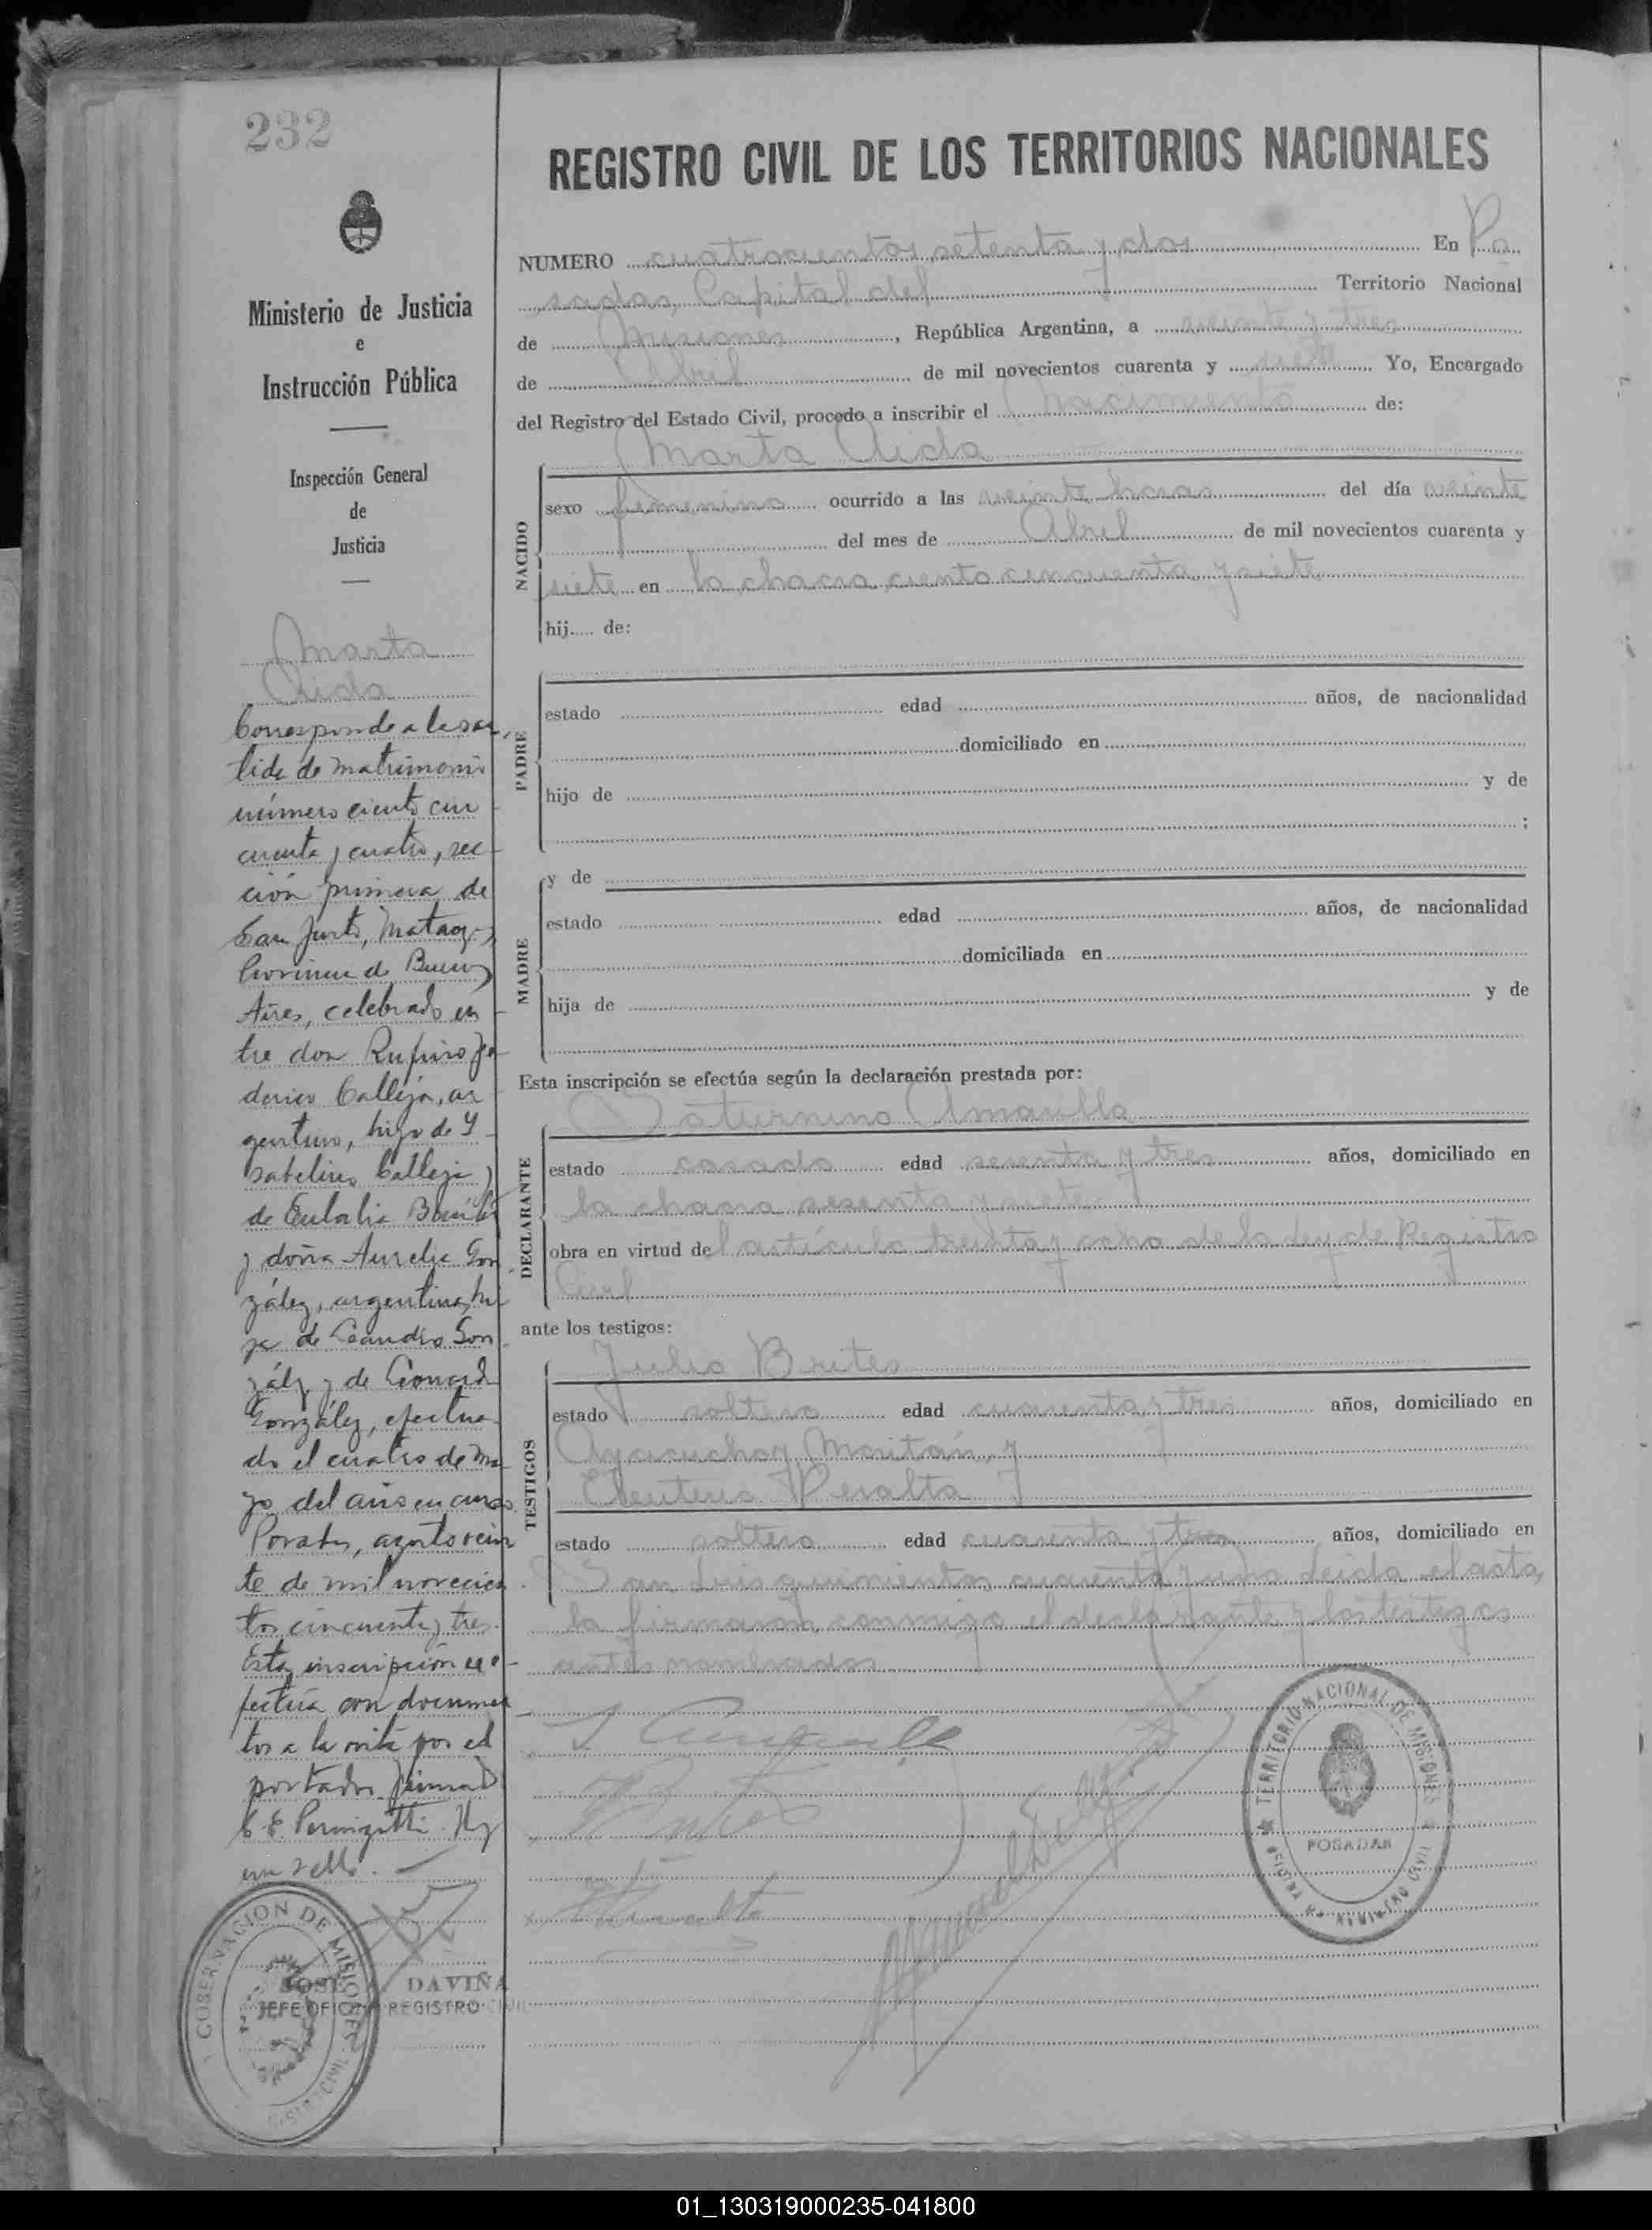 232
Ministerio de Justicia
e
Instrucción Pública
Inspección General
de
Justicia
Marta
Aida
Corresponde a la par
tida de matrimonio
número ciento cin
cuenta y cuatro, sec
ción primera de
San Justo, Matanz
Provincia de Buenos
Aires, celebrado en
tre don Rufino Fe
derico Calleja, ar
gentino, hijo de Y
sabelino Calleja y
de Eulalia
y doña Aurelia Gon
zález, argentina, hi
ja de Leandro Gon
zález y de
González, efectua
do el cuatro de ma
yo del año en curso
Posadas, agosto vein
te de mil novecien
tos cincuenta y tres.
Esta inscripción se e
fectúa con documen
tos a la vista por el
portador. Firmado
C. E. Hay
un sello.
GOBERNACION DE MISIONES
JOSE DAVIÑA
JEFE OFICINA REGISTRO CIVIL
REGISTRO CIVIL DE LOS TERRITORIOS NACIONALES
NUMERO cuatrocientos setenta y dos En Po
sadas, Capital del Territorio Nacional
de Misiones, República Argentina, a veinte y tres
de Abril de mil novecientos cuarenta y siete Yo, Encargado
del Registro del Estado Civil, procedo a inscribir el nacimiento de:
Marta Aida
NACIDO
sexo femenino ocurrido a las veinte horas del día veinte
del mes de Abril de mil novecientos cuarenta y
siete en la chacra ciento cincuenta y siete
hij..... de:
PADRE
estado edad años, de nacionalidad
domiciliado en
hijo de y de
;
MADRE
y de
estado edad años, de nacionalidad
domiciliada en
hija de y de
Esta inscripción se efectúa según la declaración prestada por:
Saturnino Amarilla
DECLARANTE
estado casado edad sesenta y tres años, domiciliado en
la chacra sesenta y siete
obra en virtud del artículo treinta y ocho de la Ley de Registro
Civil
ante los testigos:
Julio Brites
TESTIGOS
estado soltero edad cuarenta y tres años, domiciliado en
Ayacucho y Moritán, y
Eleuterio Peralta
estado soltero edad cuarenta y tres años, domiciliado en
San Luis quinientos cuarenta y uno Leida el acta,
la firmaron conmigo el declarante y los testigos
antes nombrados
S Amarilla
J Brites
TERRITORIO NACIONAL DE MISIONES
POSADAS
01_130319000235-041800